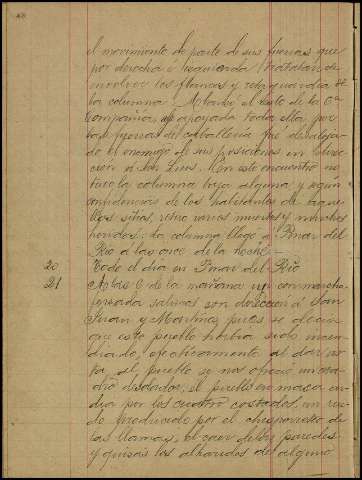 el movimiento de parte de sus fuerzas que
por derecha é izquierda trataban de
envolver los flancos y retaguardia de
la columna. Mientras el resto de la 6ª
Compañia y apoyada toda ella por
las fuerzas de caballeria fué desaloja-
do el enemigo de sus posiciones en direc-
cion á San Luis. En este encuentro no
tuvo la columna baja alguna y según
confidencias de los habitantes de aque-
llos sitios, retiró varios muertos y muchos
heridos: la columna llegó á Pinar del
Rio á las once de la noche.
20 Todo el dia en Pinar del Rio
21 A las 6 de la mañana y con marcha
forzada salimos con direccion á San
Juan y Martinez, pues se decia
que este pueblo habia sido incen-
diado, efectivamente al dar vis-
ta, el pueblo se nos ofreció un cua-
dro desolador, el pueblo en masa ar-
dia por los cuatro costados, un rui-
do producido por el chisporroteo de
las llamas, el caer de las paredes
y quizás los alharidos de alguno